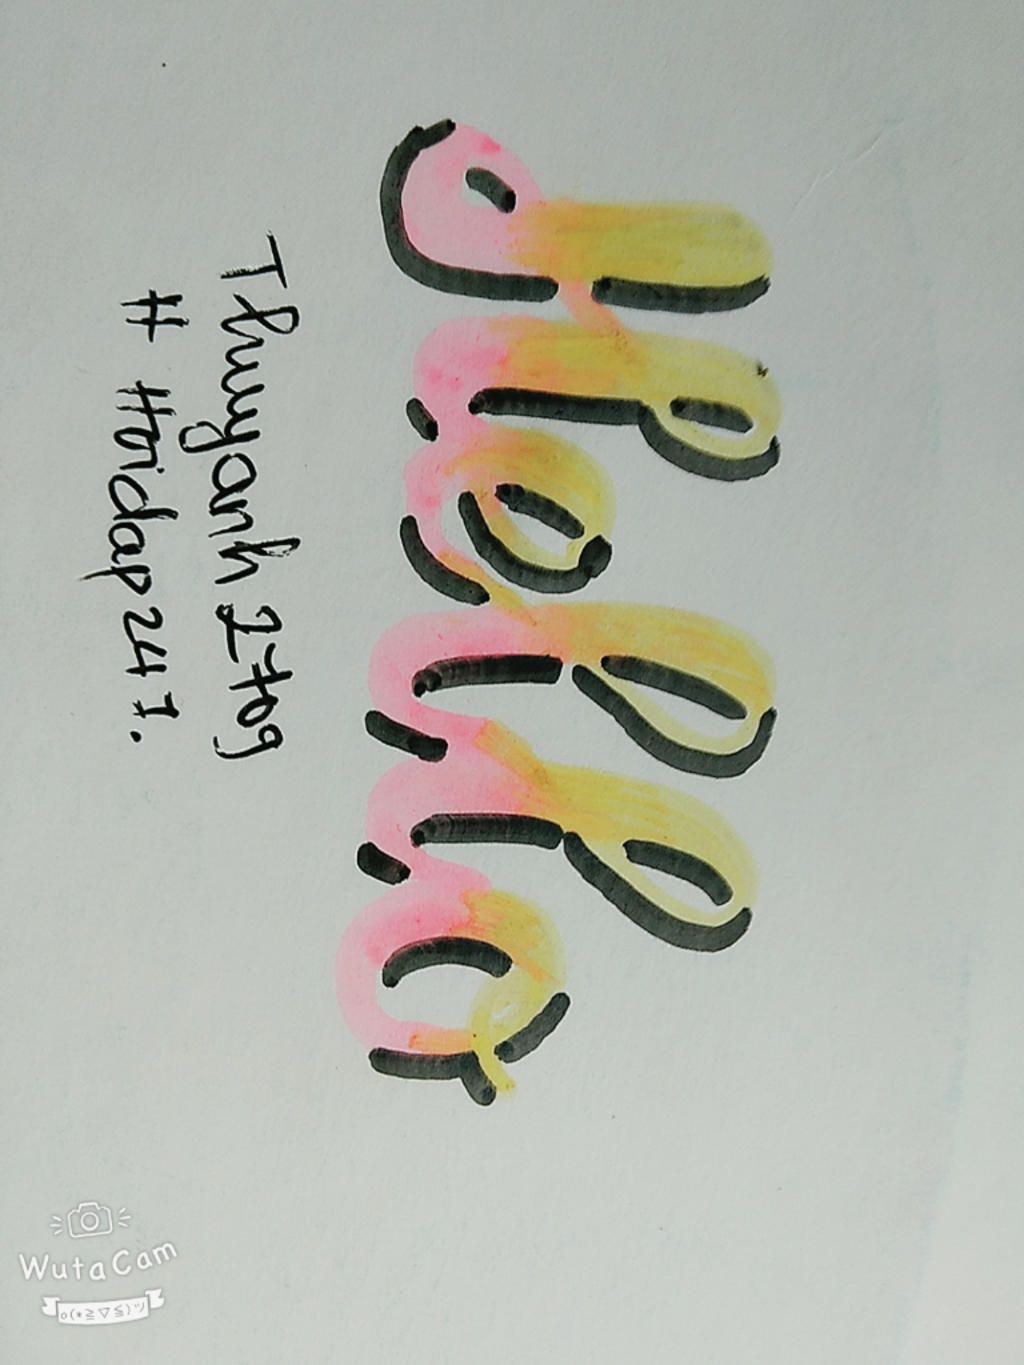 Hello
Thuyanh2709
# Hoidap247.
WutaCam
o(*≧▽≦)ツ